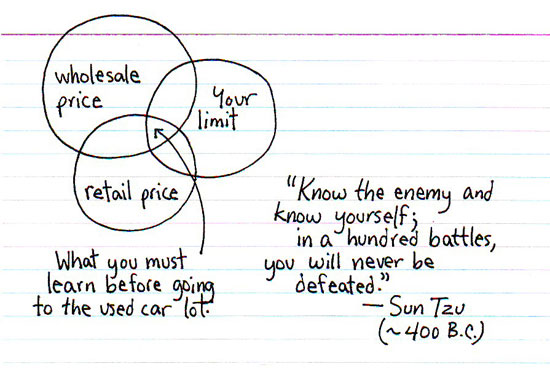 wholesale
price
Your
limit
retail price
What you must
learn before going
to the used car lot.
"Know the enemy and
know yourself;
in a hundred battles,
you will never be
defeated."
— Sun Tzu
(~400 B.C.)